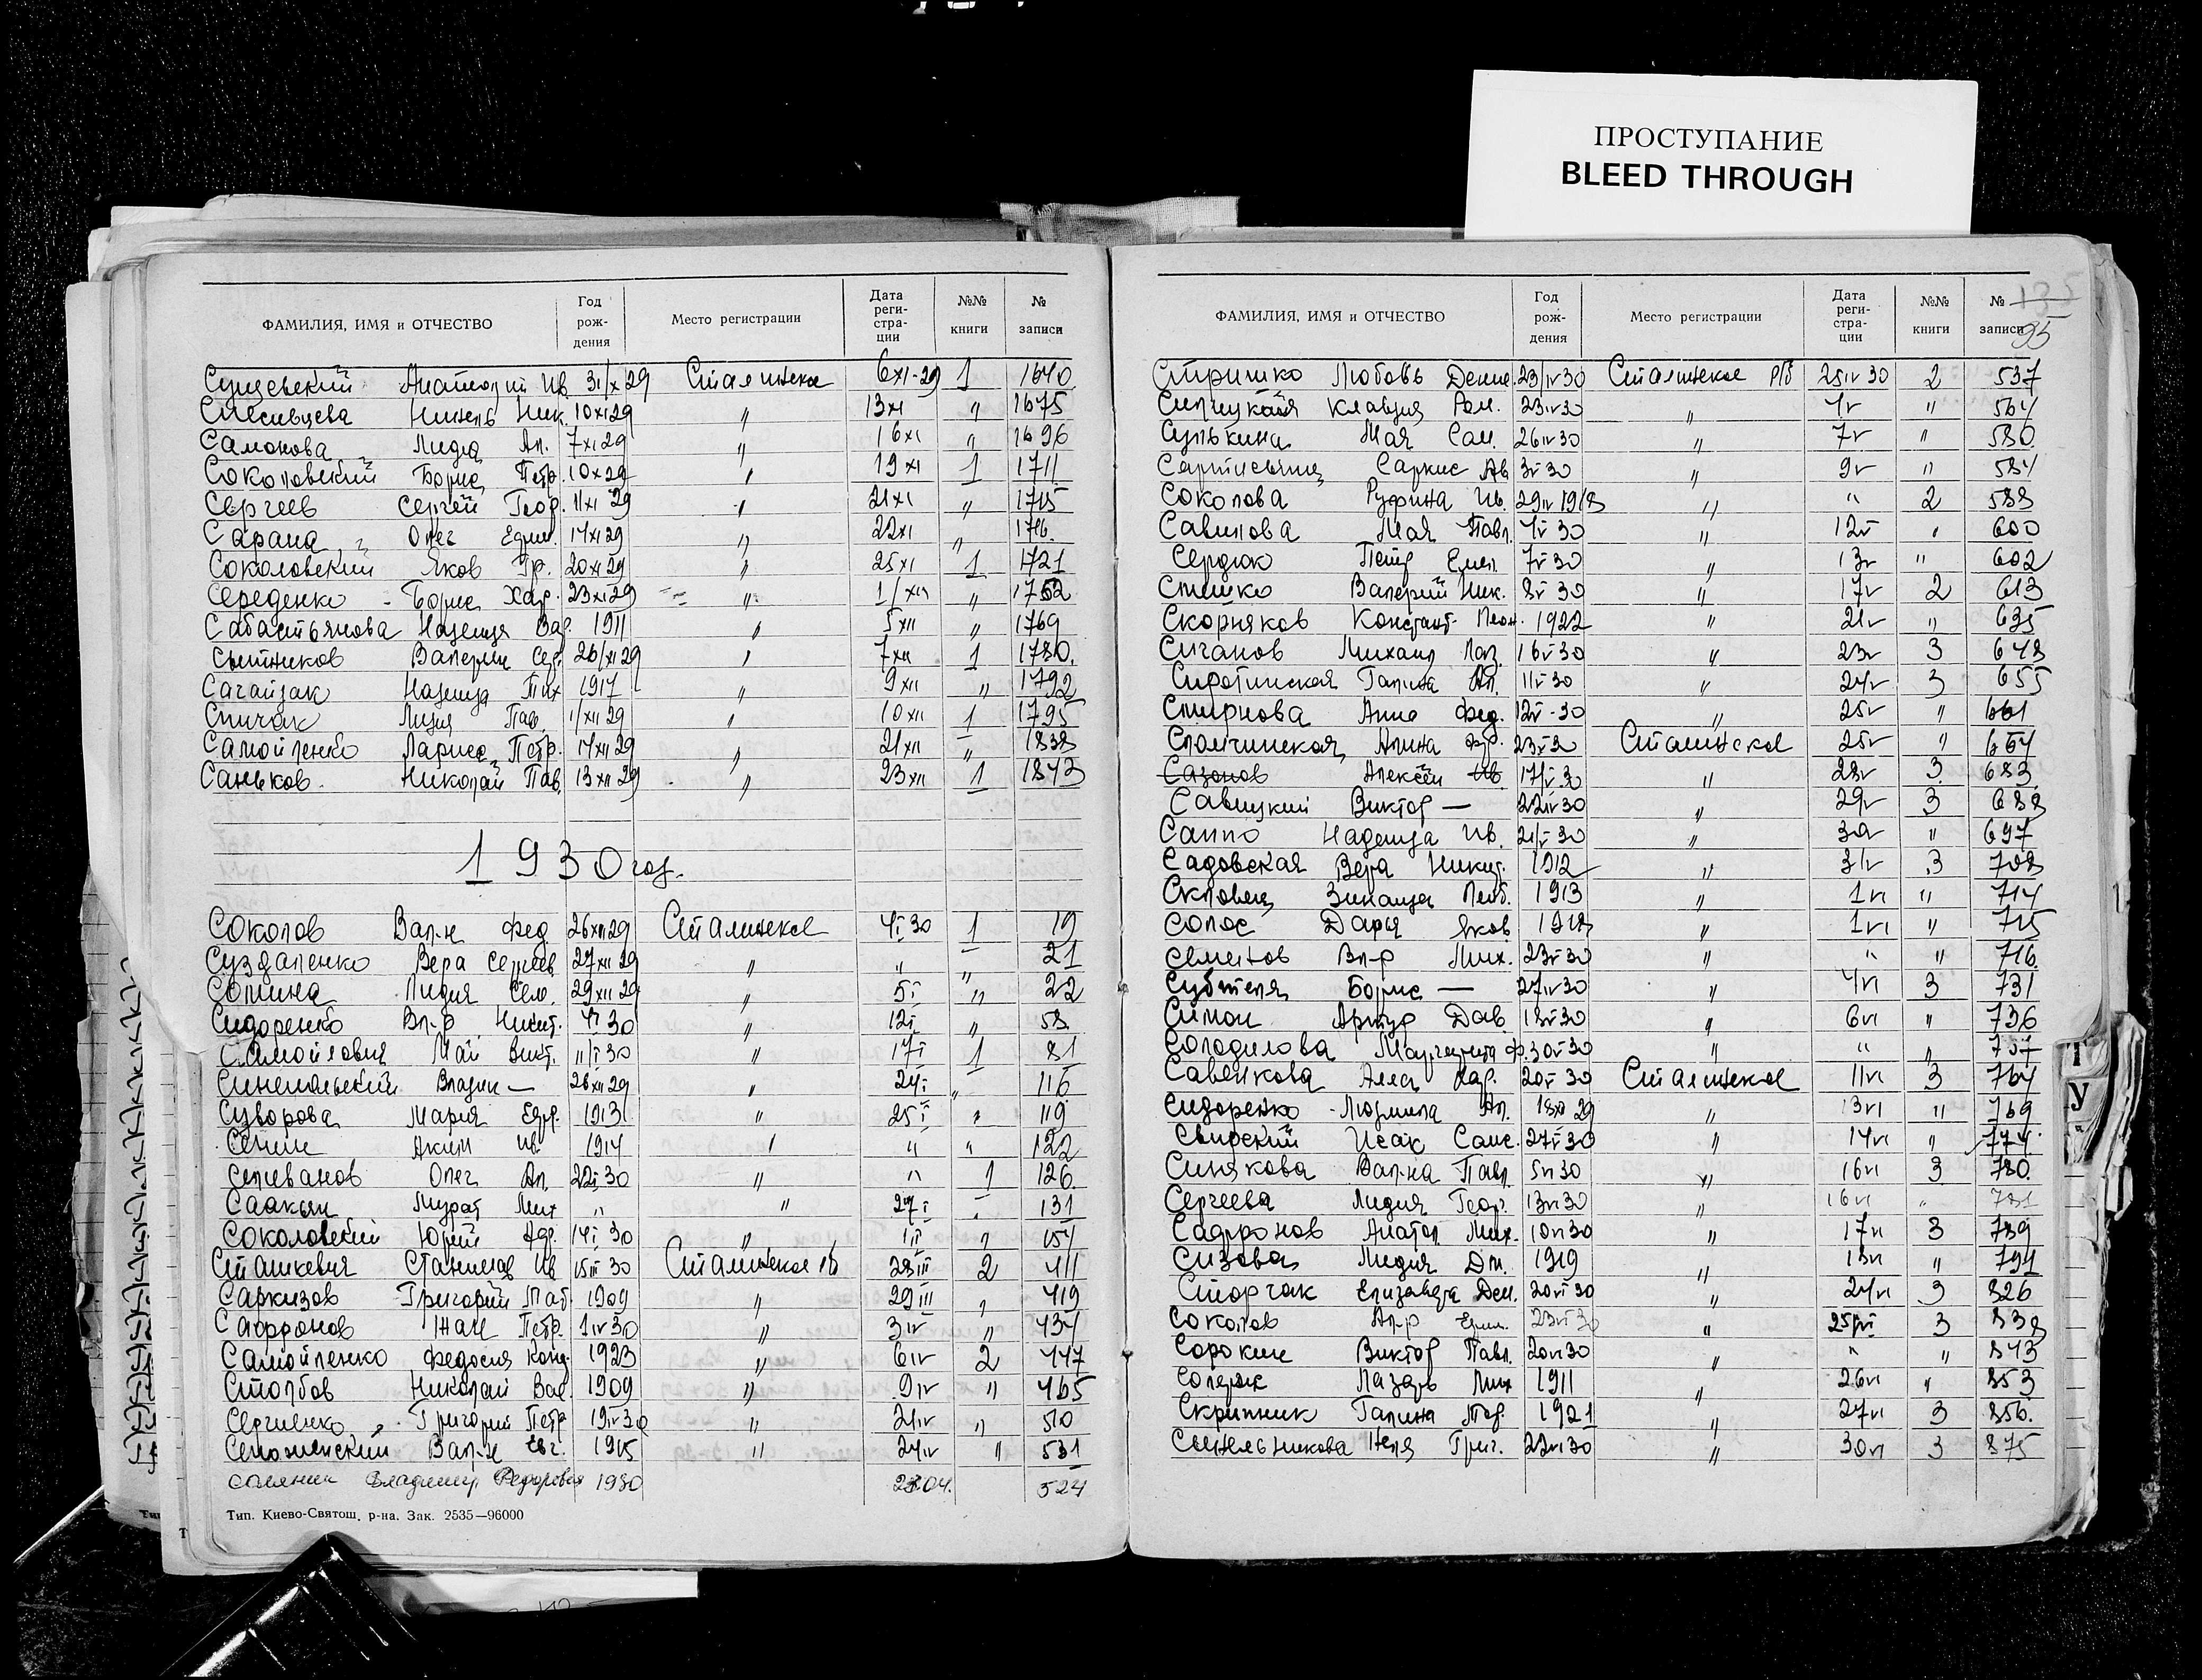 ПРОСТУПАНИЕ
BLEED THROUGH
ФАМИЛИЯ, ИМЯ и ОТЧЕСТВО Год рождения Место регистрации Дата регистрации №№ книги № записи
Анатолий Ив. 31/X 29 Сталинское 6XI-29 1 1640
Нинель Ник. 10XI29 〃 13XI 〃 1675
Самонова Лидия Ал. 7XI29 〃 16XI 〃 1696
Соколовский Борис Петр. 10X29 〃 19XI 1 1711
Сергеев Сергей Геор. 11XI 29 〃 21XI 〃 1715
Олег 14XI29 〃 22XI 〃 1716
Соколовский Яков Гр. 20XI29 〃 25XI 1 1721
Середенко Борис Хар. 23XI29 〃 1/XII 〃 1752
Сабастьянова Надежда Вас. 1911 〃 5XII 〃 1769
Сытников Валерий Сер. 26/XI29 〃 7XII 1 1780
Сагайдак Надежда Тих 1917 〃 9XII 〃 1792
Спичак Лидия Пав. 1/XII29 〃 10XII 1 1795
Самойленко Лариса Петр. 14XII29 〃 21XII 〃 1838
Саньков Николай Пав. 13XII29 〃 23XII 1 1843
1930 год.
Соколов Вал-н Фед. 26XII29 Сталинское 4I30 1 19
Суздаленко Вера Сергеев. 27XII29 〃 〃 〃 21
Сомина Лидия Сем. 29XII29 〃 5I 〃 22
Сидоренко Вл-р Никит. 4I30 〃 12I 〃 58
Самойлович Май Викт. 11/I30 〃 17I 1 81
Владик — 26XII29 〃 24I 〃 116
Суворова Мария Ефр. 1913 〃 25I 〃 119
Сенин Аким Ив. 1914 〃 〃 〃 122
Селиванов Олег Ал. 22I30 〃 〃 1 126
Саакян Мурат Мих 〃 〃 27I 〃 131
Соколовский Юрий 14I30 〃 1II 〃 154
Сташкевич Станислав Ив 15III30 Сталинское 28III 2 411
Саркизов Григорий Мат. 1909 〃 29III 〃 419
Сафронов Жан Петр. 1IV30 〃 3IV 〃 434
Самойленко Федосия Конд. 1923 〃 6IV 2 447
Столбов Николай Вас. 1909 〃 9IV 〃 465
Сергиенко Григорий Петр 19IV30 〃 21IV 〃 510
Вал-н Евг. 1915 〃 24IV 〃 531
Соляник Владимир Федорович 1930 23.04. 524
Тип. Киево-Святош. р-на. Зак. 2535—96000
135
95
ФАМИЛИЯ, ИМЯ и ОТЧЕСТВО Год рождения Место регистрации Дата регистрации №№ книги № записи
Любовь Дение. 23/IV30 Сталинское 25IV30 2 537
Клавдия Ром. 23IV30 〃 4V 〃 564
Сулькина Мая Сам. 26IV30 〃 7V 〃 580
Саркис Ав. 3V30 〃 9V 〃 584
Соколова Руфина Ив. 29IV1918 〃 〃 2 588
Савинова Мая Павл. 4V30 〃 12V 〃 600
Сердюк Петр Емел. 7V30 〃 13V 〃 602
Валерий Ник. 8V30 〃 17V 2 613
Скорняков Констант. Леон. 1922 〃 21V 〃 635
Сиганов Михаил Лаз. 16V30 〃 23V 3 648
Сиротинская Галина Ал. 11V30 〃 24V 3 655
Смирнова Анна Фед. 12V-30 〃 25V 〃 661
Алина Сталинское 25V 〃 664
Сазонов Алексей Ив 17/V.30 〃 28V 3 683
Савицкий Виктор — 22IV30 〃 29V 3 688
Саппо Надежда Ив. 21/V30 〃 30V 〃 697
Садовская Вера Никит. 1912 〃 31V 3 708
Зинаида 1913 〃 1VI 〃 714
Солос Дарья Яков. 〃 1VI 〃 715
Семенов Вл-р Мих. 23V30 〃 〃 〃 716
Субтеля Борис — 27IV30 〃 4VI 3 731
Симон Артур Дав. 18V30 〃 6VI 〃 736
Солодилова Маргарита Ф. 30V30 〃 〃 〃 737
Савенкова Алла 20V30 Сталинское 11VI 3 764
Сидоренко Людмила Ал. 〃 13VI 〃 769
Свирский Исак Самс. 27V30 〃 14VI 〃 774
Синякова Вал-на Павл. 5VI30 〃 16VI 3 780
Сергеева Лидия Геор. 13VI30 〃 16VI 〃 781
Сафронов Анатол. Мих. 10VI30 〃 17VI 3 789
Сизова Лидия Дм. 1919 〃 18VI 〃 791
Сторчак Елизавета Дем. 20VI30 〃 24VI 3 826
Соколов Ал-р 23VI30 〃 25/VI 3 838
Сорокин Виктор Павл. 20VI30 〃 〃 〃 843
Лазарь Мих 1911 〃 26VI 〃 853
Скрипник Галина 1921 〃 27VI 3 856
Синельникова Неля Григ. 22VI30 〃 30VI 3 875
У